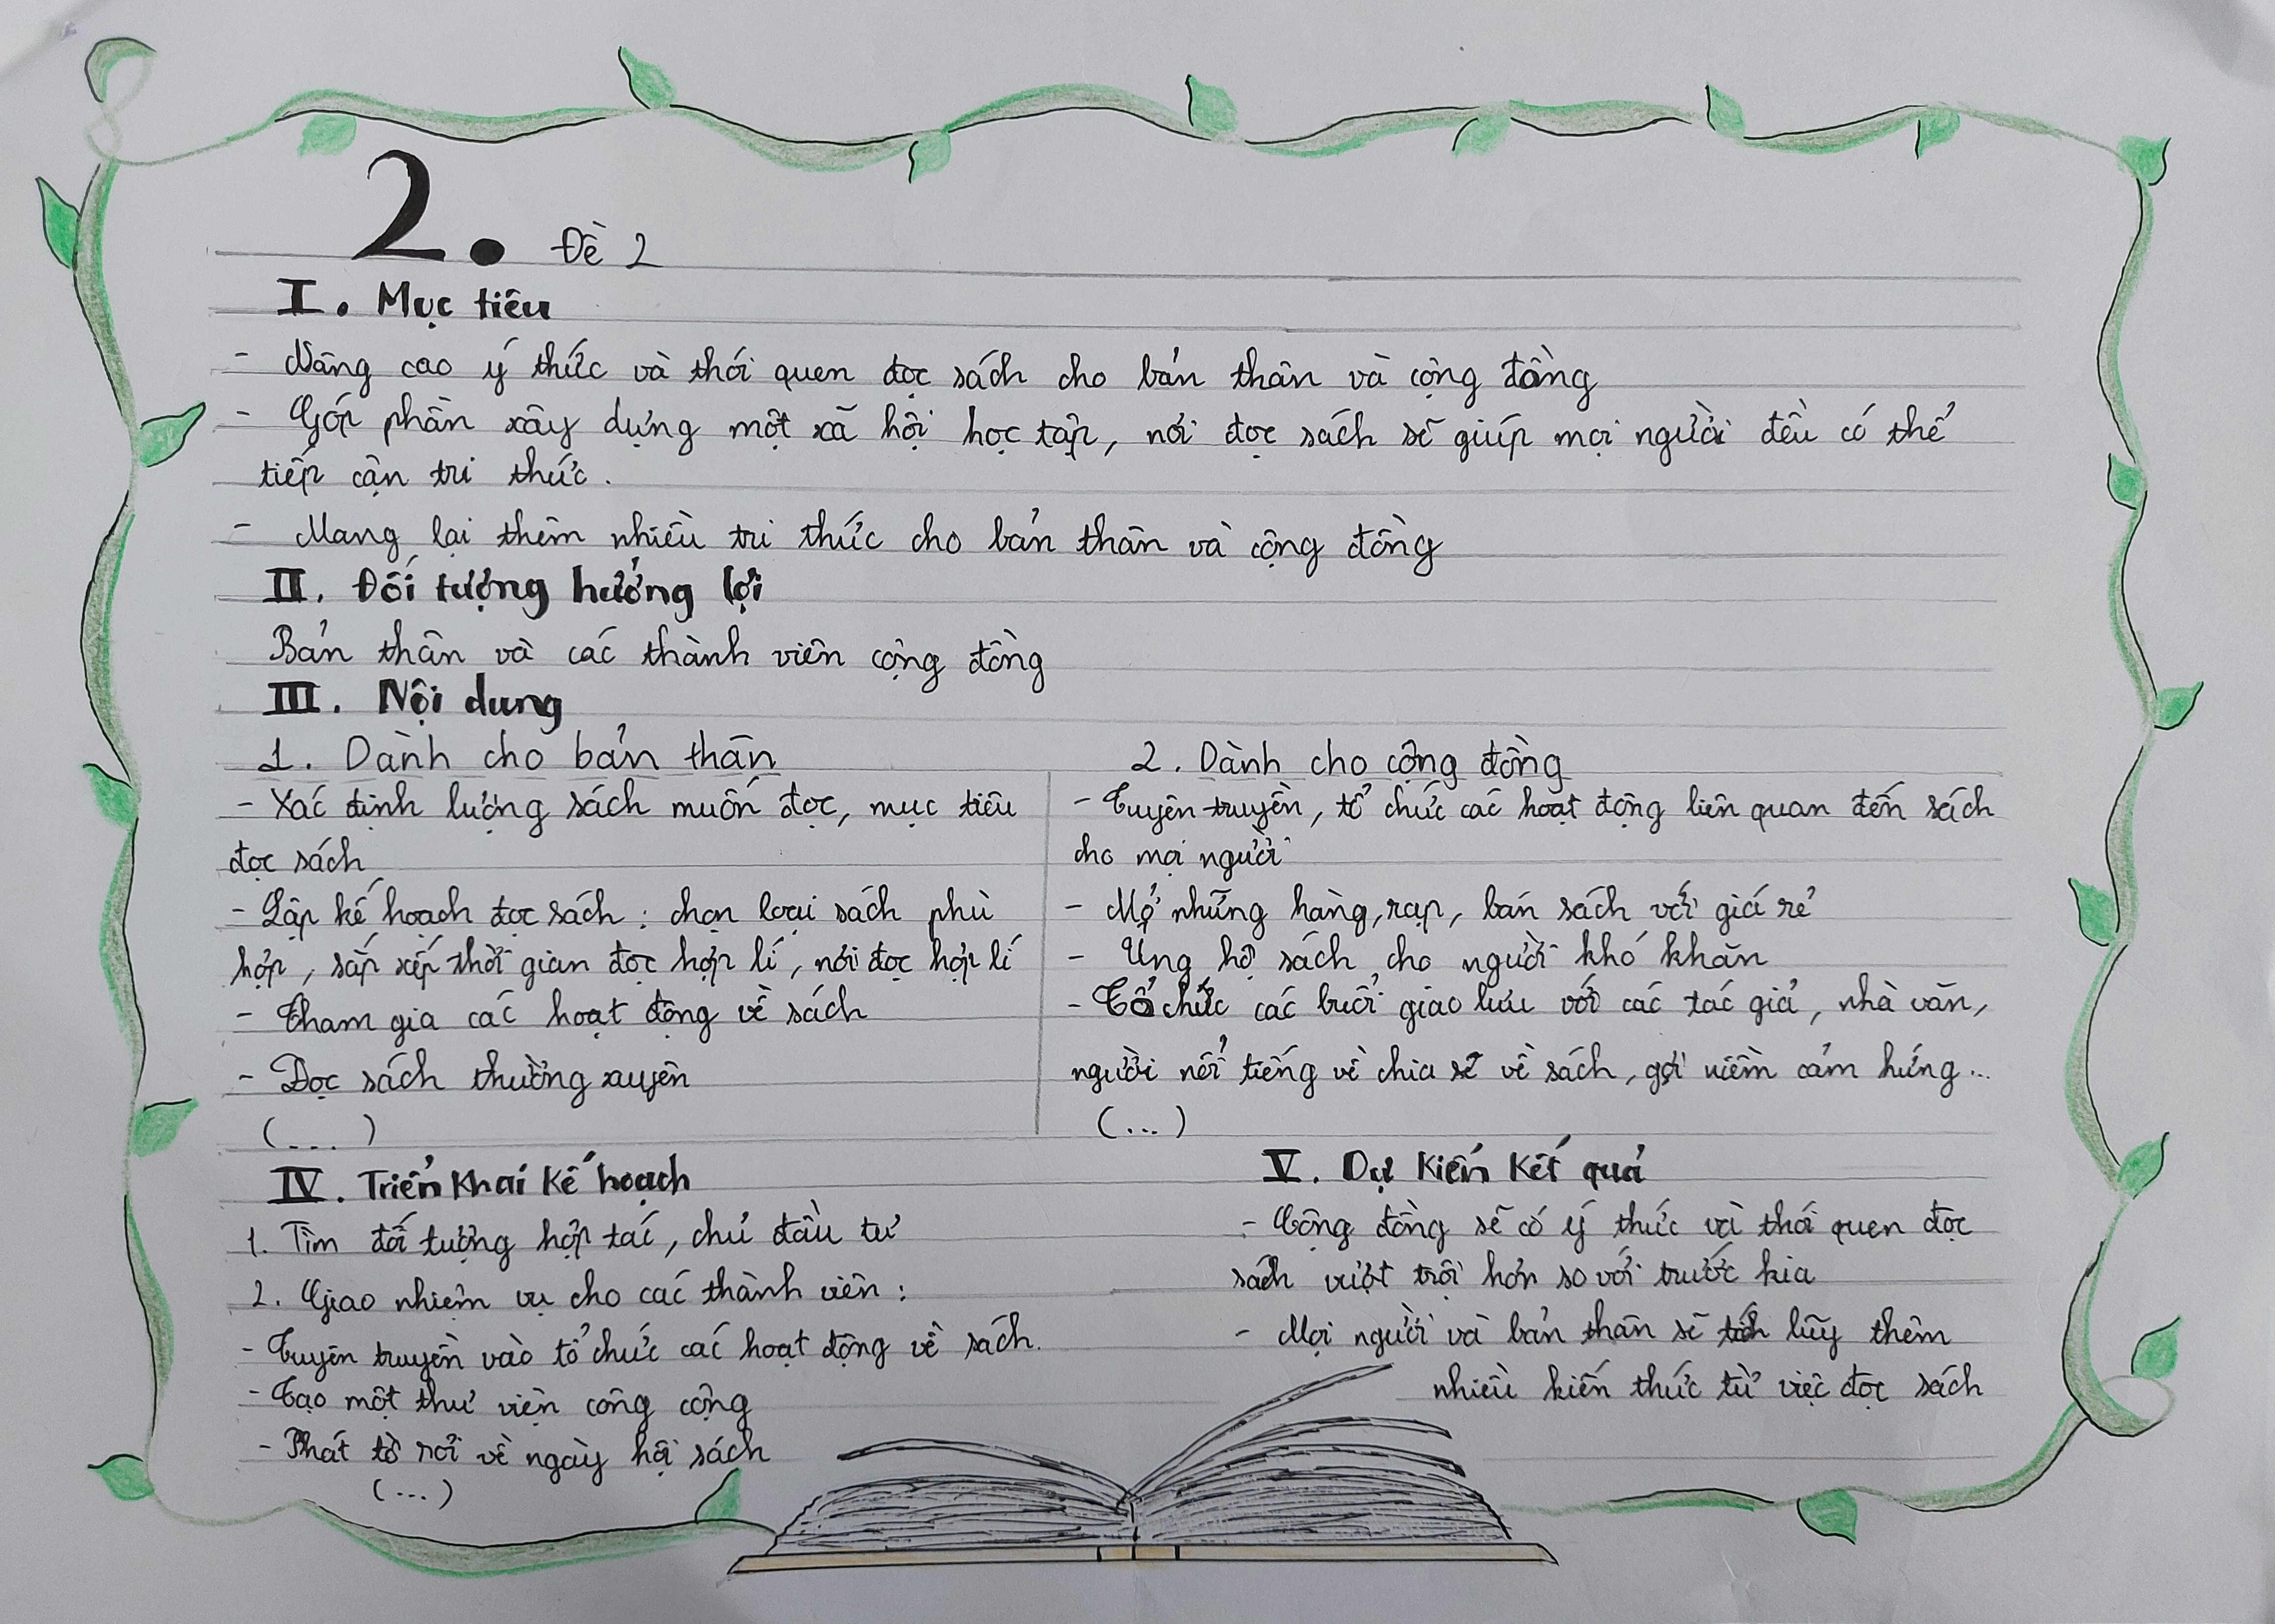 2. Đề 2
I. Mục tiêu
- Nâng cao ý thức và thói quen đọc sách cho bản thân và cộng đồng
- Góp phần xây dựng một xã hội học tập, nơi đọc sách sẽ giúp mọi người đều có thể
tiếp cận tri thức.
- Mang lại thêm nhiều tri thức cho bản thân và cộng đồng
II. Đối tượng hưởng lợi
Bản thân và các thành viên cộng đồng
III. Nội dung
1. Dành cho bản thân
- Xác định lượng sách muốn đọc, mục tiêu
đọc sách
- Lập kế hoạch đọc sách: chọn loại sách phù
hợp, sắp xếp thời gian đọc hợp lí, nơi đọc hợp lí
- Tham gia các hoạt động về sách
- Đọc sách thường xuyên
(...)
2. Dành cho cộng đồng
- Tuyên truyền, tổ chức các hoạt động liên quan đến sách
cho mọi người
- Mở những hàng, rạp, bán sách với giá rẻ
- Ủng hộ sách cho người khó khăn
- Tổ chức các buổi giao lưu với các tác giả, nhà văn,
người nổi tiếng về chia sẻ về sách, gợi niềm cảm hứng...
(...)
IV. Triển khai kế hoạch
1. Tìm đối tượng hợp tác, chủ đầu tư
2. Giao nhiệm vụ cho các thành viên:
- Tuyên truyền vào tổ chức các hoạt động về sách.
- Tạo một thư viện công cộng
- Phát tờ rơi về ngày hội sách
(...)
V. Dự kiến kết quả
- Cộng đồng sẽ có ý thức và thói quen đọc
sách vượt trội hơn so với trước kia
- Mọi người và bản thân sẽ tích lũy thêm
nhiều kiến thức từ việc đọc sách